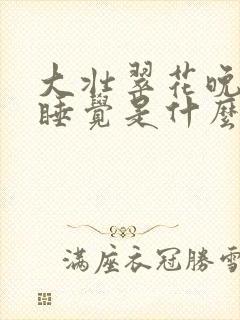 大壯翠花晚
睡覺是什麼
滿座衣冠勝雪